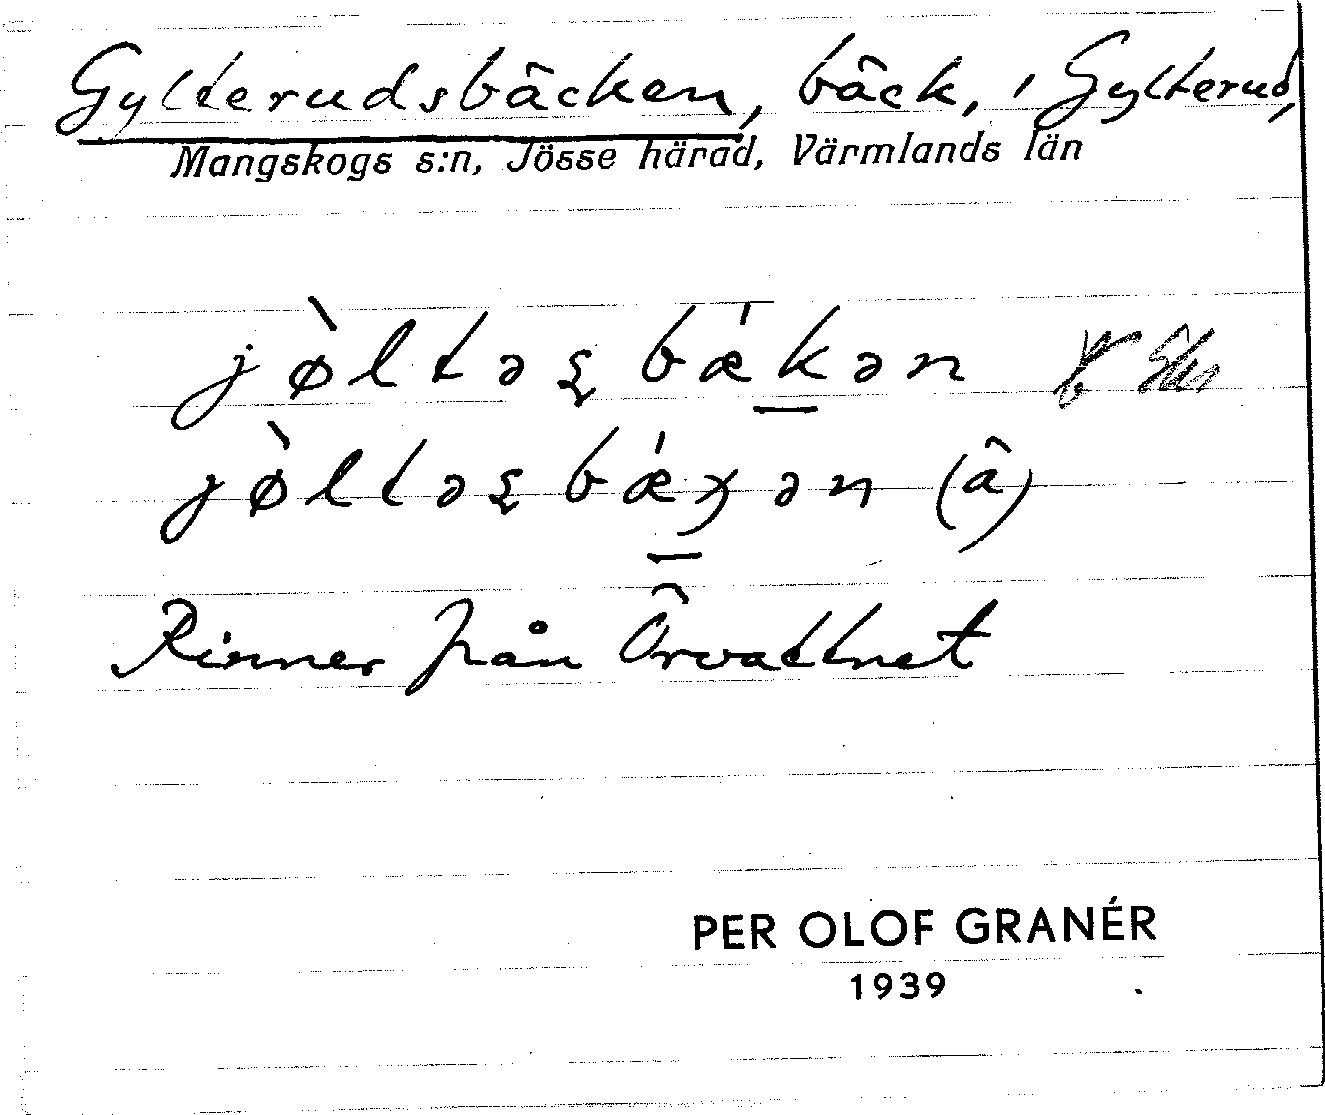 Gylterudsbäcken, bäck, i Gylterud,
Mangskogs s:n, Jösse härad, Värmlands län
jø̀ltəʂbǽkən
jø̀ltəʂbǽχən (â)
Rinner från Örvattnet
PER OLOF GRANÉR
1939